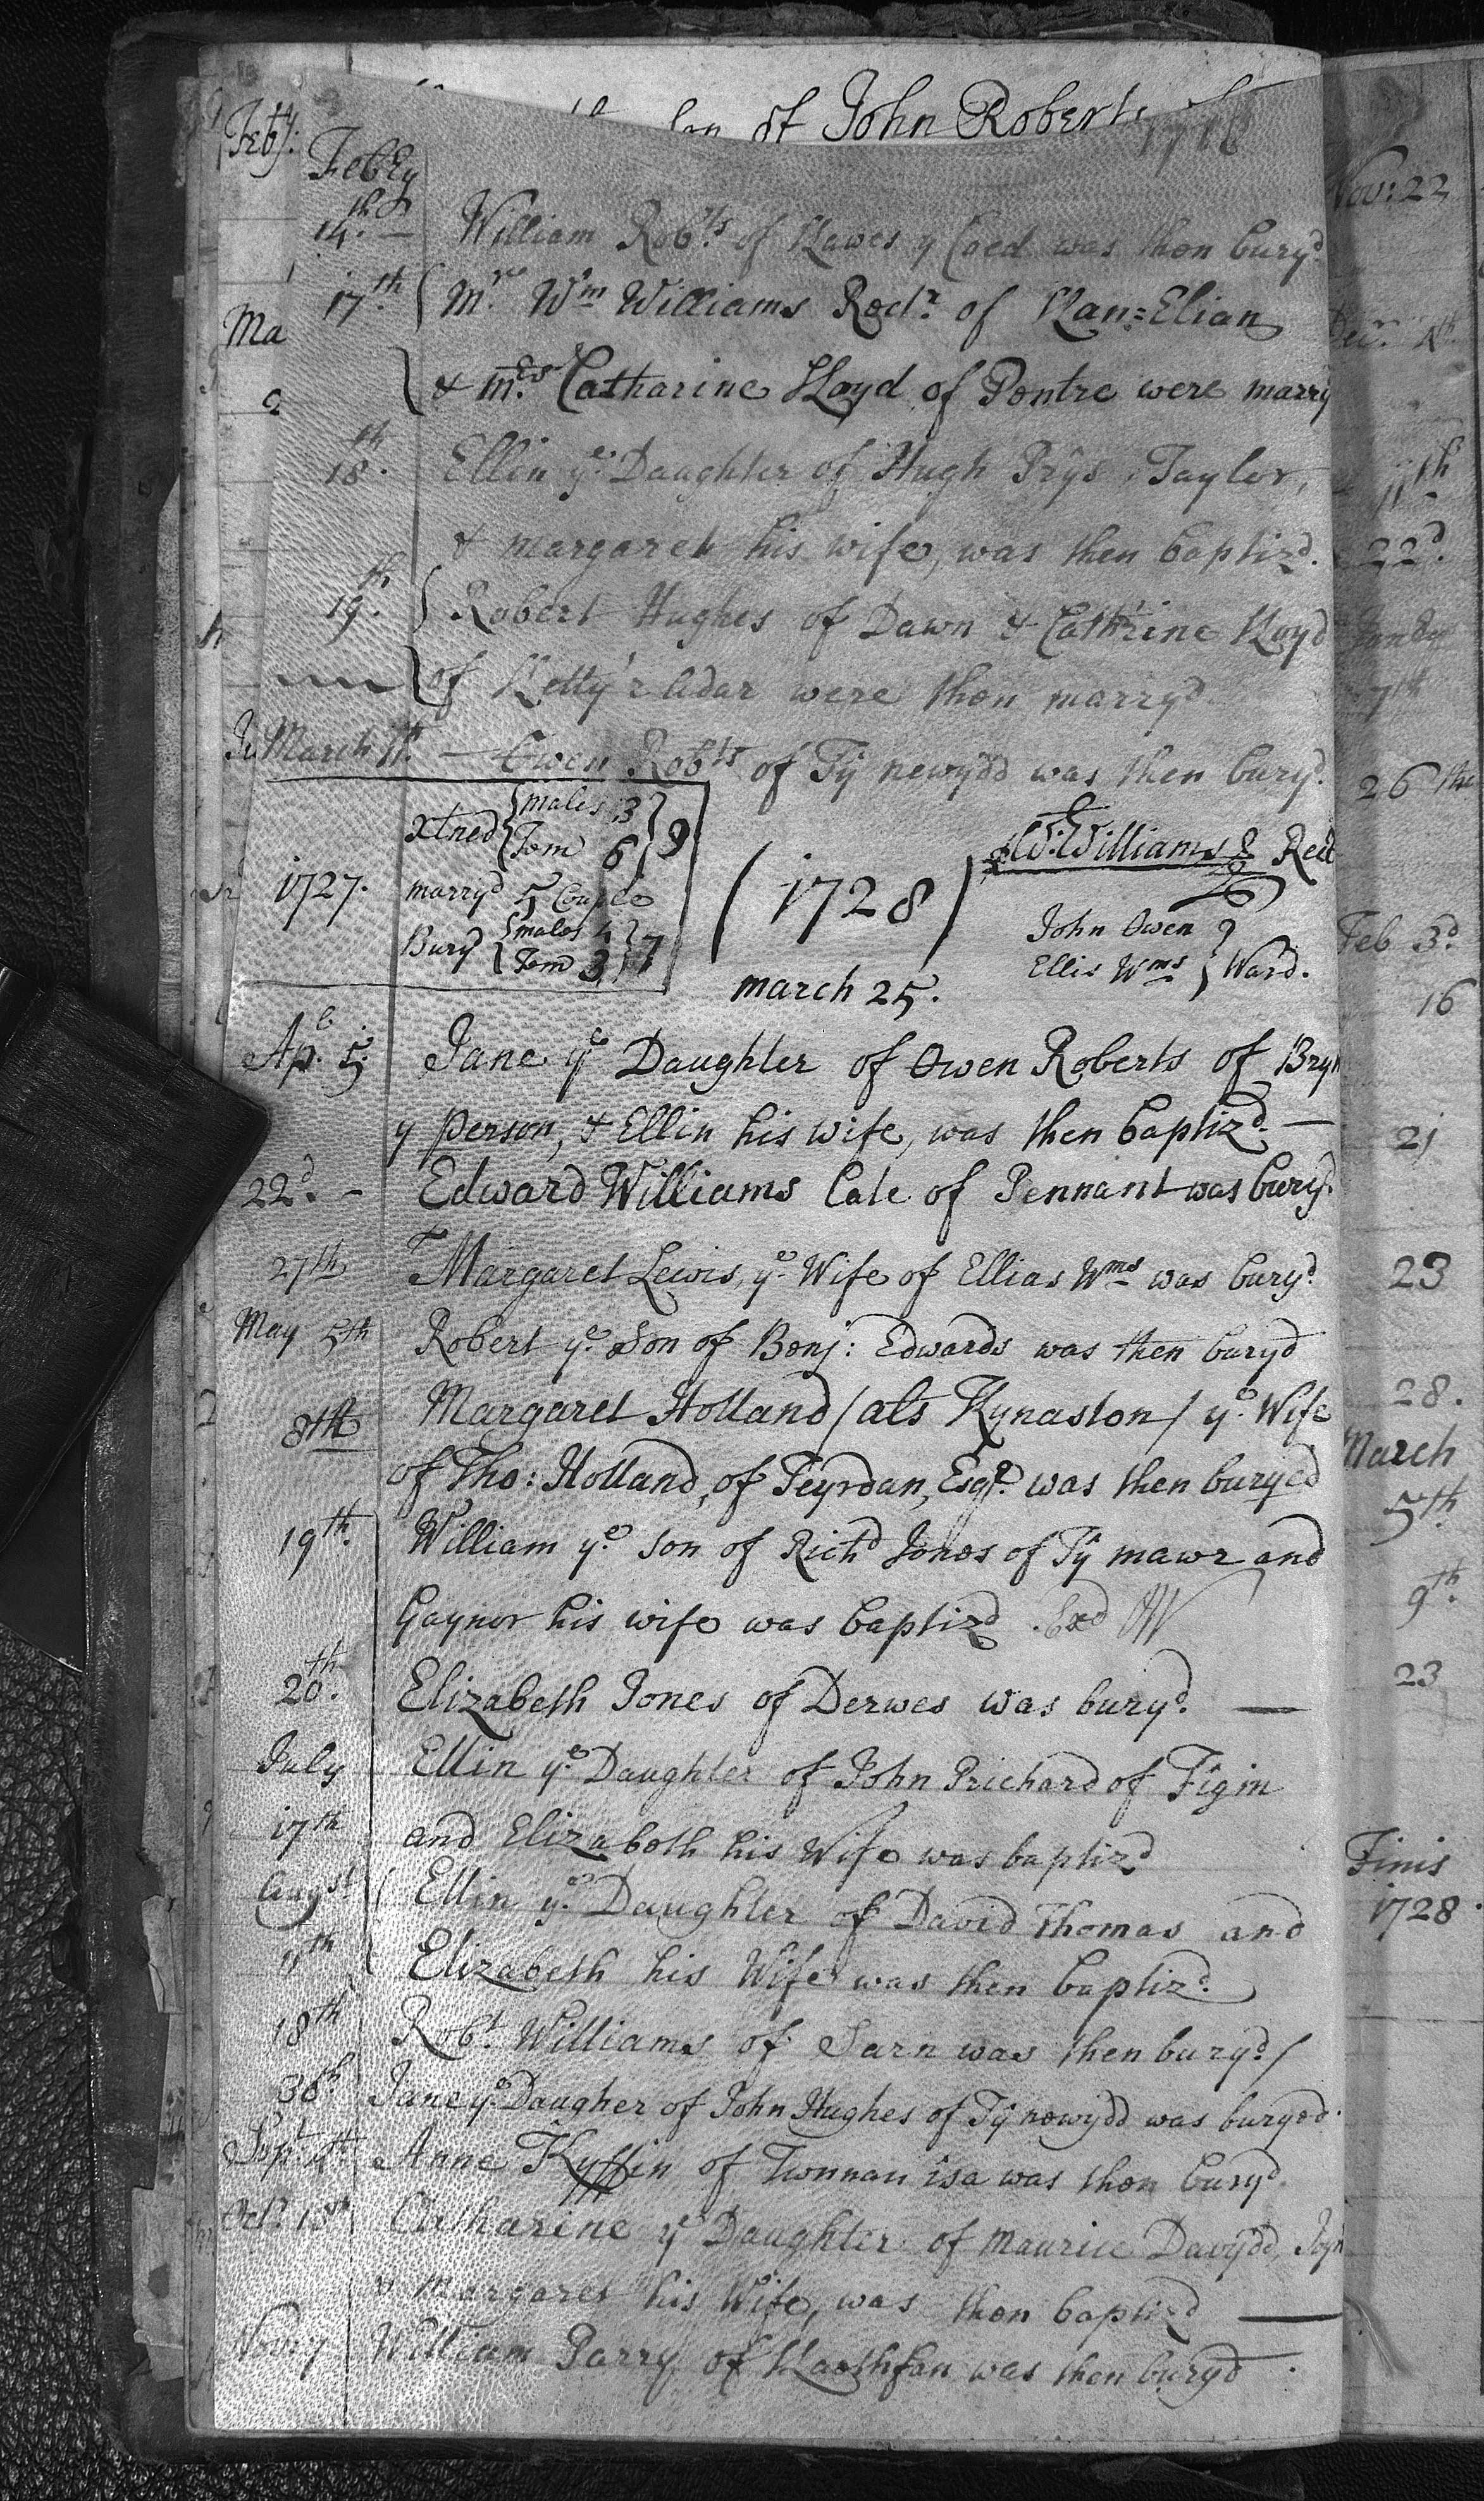 son of John Roberts
Feb^ry:
Feb^ry
14.^th — William Rob^ts of Hawes y Coed was then bury^d
17.^th M^r. W^m Williams Rect^r of Llan=Elian
& M^rs. Catharine Lloyd of Pentre were marry
18.^th Ellin y^e Daughter of Hugh Prys, Taylor,
& margaret his wife, was then baptiz^d.
19.^th Robert Hughes of Dawn & Cath'rine Lloyd
of Lletty'r Adar were then marry^d
March 11.^th — Owen Rob^ts of Tŷ newydd was then bury^d.
1727. xtned males 3 Fem 6 9
marry^d 5 Couple
Bury^d males 4 Fem 3 7
1728
march 25.
W: Williams Rect
John Owen
Ellis W^ms Ward.
Ap.^l 5. Jane y^e Daughter of Owen Roberts of Bryn
y person, & Ellin his wife, was then baptiz^d. —
22^d. — Edward Williams late of Pennant was bury^d.
27^th Margaret Lewis, y^e Wife of Ellias W^ms was bury^d
May 5^th Robert y^e Son of Benj: Edwards was then bury^d
8^th Margaret Holland / als Kynaston / y^e Wife
of Tho: Holland, of Teyrdan, Esq^r. was then buryed
19^th. William y^e son of Rich^d Jones of Tŷ mawr and
Gaynor his wife was baptiz^d Exd
20.^th Elizabeth Jones of Derwes was bury^d. —
July Ellin y^e Daughter of John Prichard of Figin
17^th and Elizabeth his Wife was baptiz^d
Augst Ellin y^e Daughter of David Thomas and
11^th Elizabeth his Wife was then baptiz^d.
18^th Rob^t. Williams of Sarn was then bury^d. /
30^th Jane y^e Daugher of John Hughes of Tŷ newydd was buryed.
Sep^t. 4^th. Anne Kyffin of Twnnan isa was then bury^d.
Oct^r. 13^th Catharine y^e Daughter of Maurice Davydd, Joyn
& Margaret his Wife, was then baptiz^d —
Nov: 7 William Parry of Llaethfan was then bury^d.
Nov: 22
Dec^r. 4^th.
11^th
22^d.
7^th
26^th
Feb 3^d
16
21
23
28.
March
5^th
9^th.
23
Finis
1728.